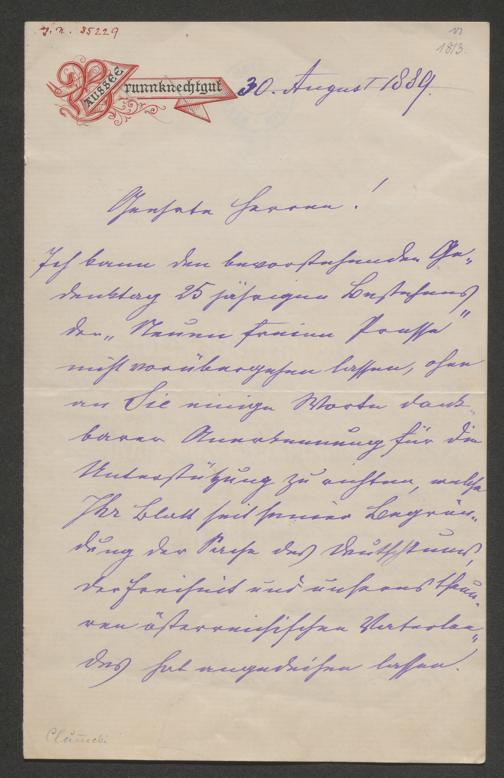 J. N. 35229
VI
1813.
AUSSEE
Brunnknechtgut
30. August 1889.
Geehrte Herren!
Ich kann den bevorstehenden Ge-
denktag 25 jährigen Bestehens
der „Neuen freien Presse"
nicht vorübergehen lassen, ohne
an Sie einige Worte dank-
barer Anerkennung für die
Unterstützung zu richten, welche
Ihr Blatt seit seiner Begrün-
dung der Sache des Deutschtums,
der Freiheit und unseres theu-
ren österreichischen Vaterlan-
des hat angedeihen lassen.